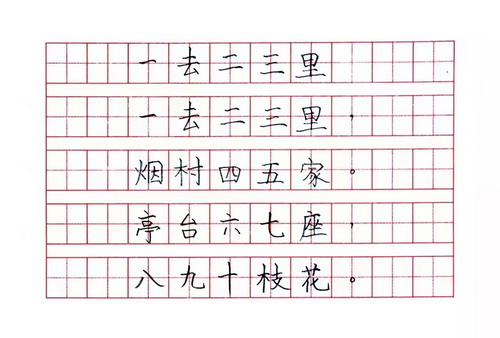 一去二三里
一去二三里，
烟村四五家。
亭台六七座，
八九十枝花。